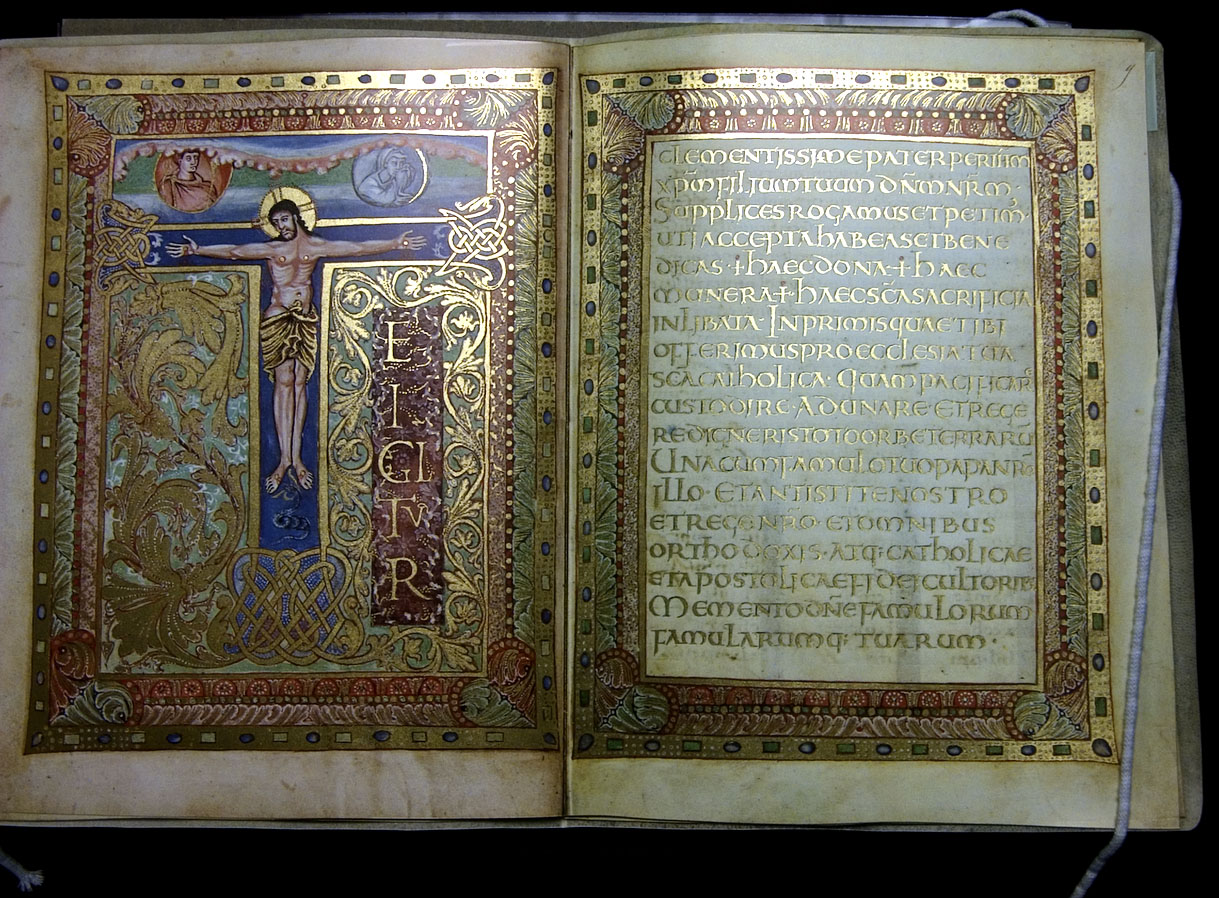 TE
I
GI
TVR
CLEMENTISSIME PATER PER IHM
XPM FILIUM TUUM DNM NRM·
SUPPLICES ROGAMUS ET PETIM·
UTI ACCEPTA HABEAS ET BENE
DICAS ✝ HAEC DONA ✝ HAEC
MUNERA ✝ HAEC SCA SACRIFICIA
INLIBATA· IN PRIMIS QUAE TIBI
OFFERIMUS PRO ECCLESIA TUA
SCA CATHOLICA· QUAM PACIFICARE
CUSTODIRE· ADUNARE ET REGE
RE DIGNERIS TOTO ORBE TERRARU
UNA CUM FAMULO TUO PAPA NRO
ILLO· ET ANTISTITE NOSTRO
ET REGE NRO· ET OMNIBUS
ORTHODOXIS· ATQ: CATHOLICAE
ET APOSTOLICAE FIDEI CULTORIB:
MEMENTO DNE FAMULORUM
FAMULARUMQ: TUARUM·